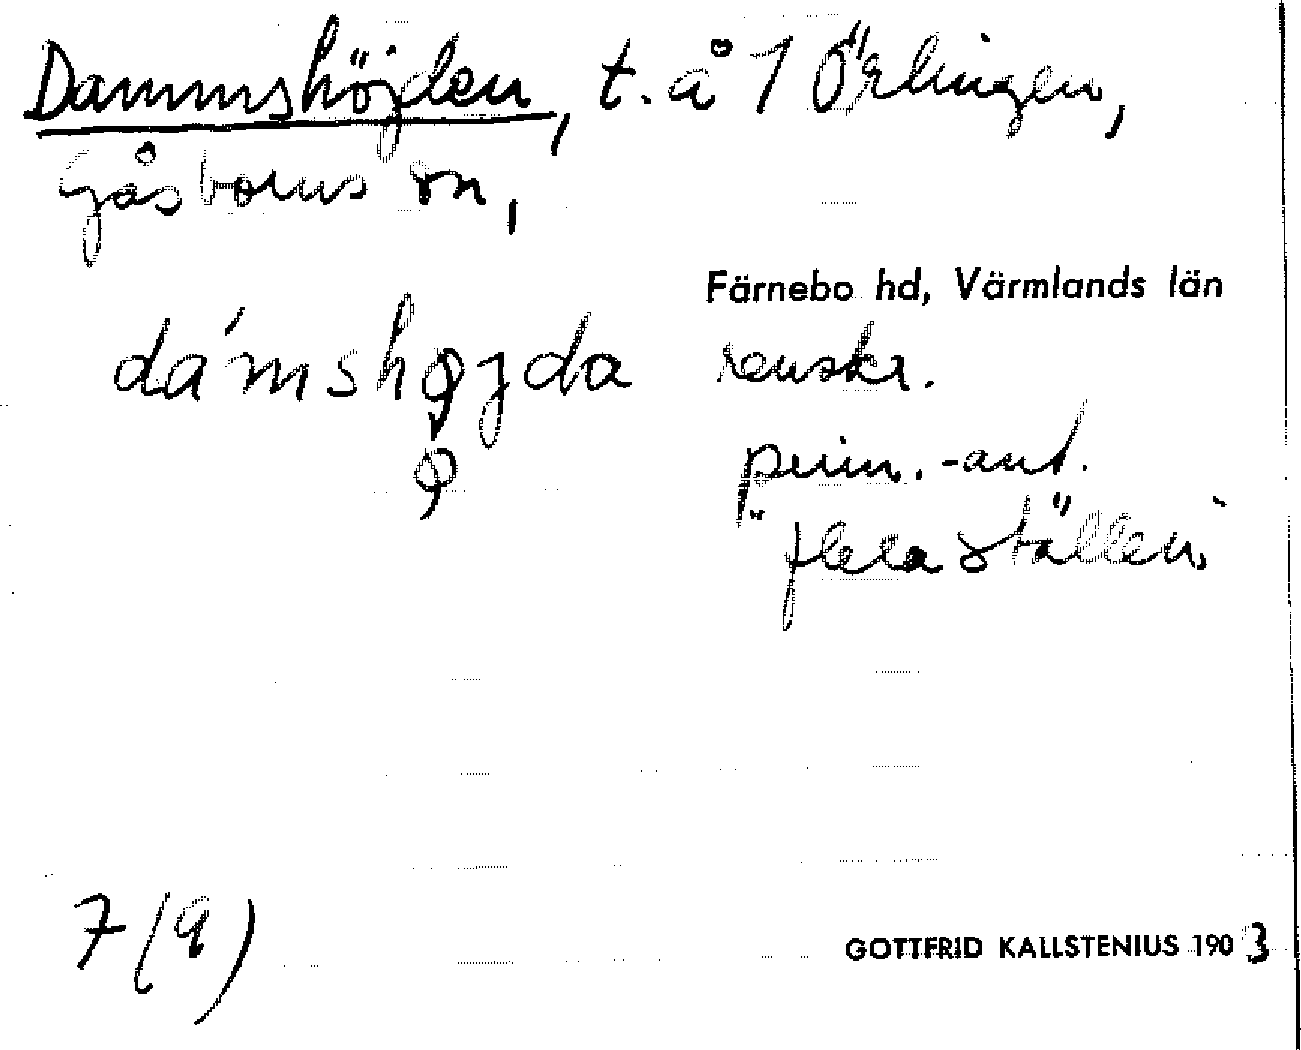 Dammshöjden, t. å 1 Örlingen,
Gåsborns sn,
Färnebo hd, Värmlands län
da´mshǫjda renskr.
ǫ
prim.-ant.
"flera ställen"
7 (9)
GOTTFRID KALLSTENIUS 1903